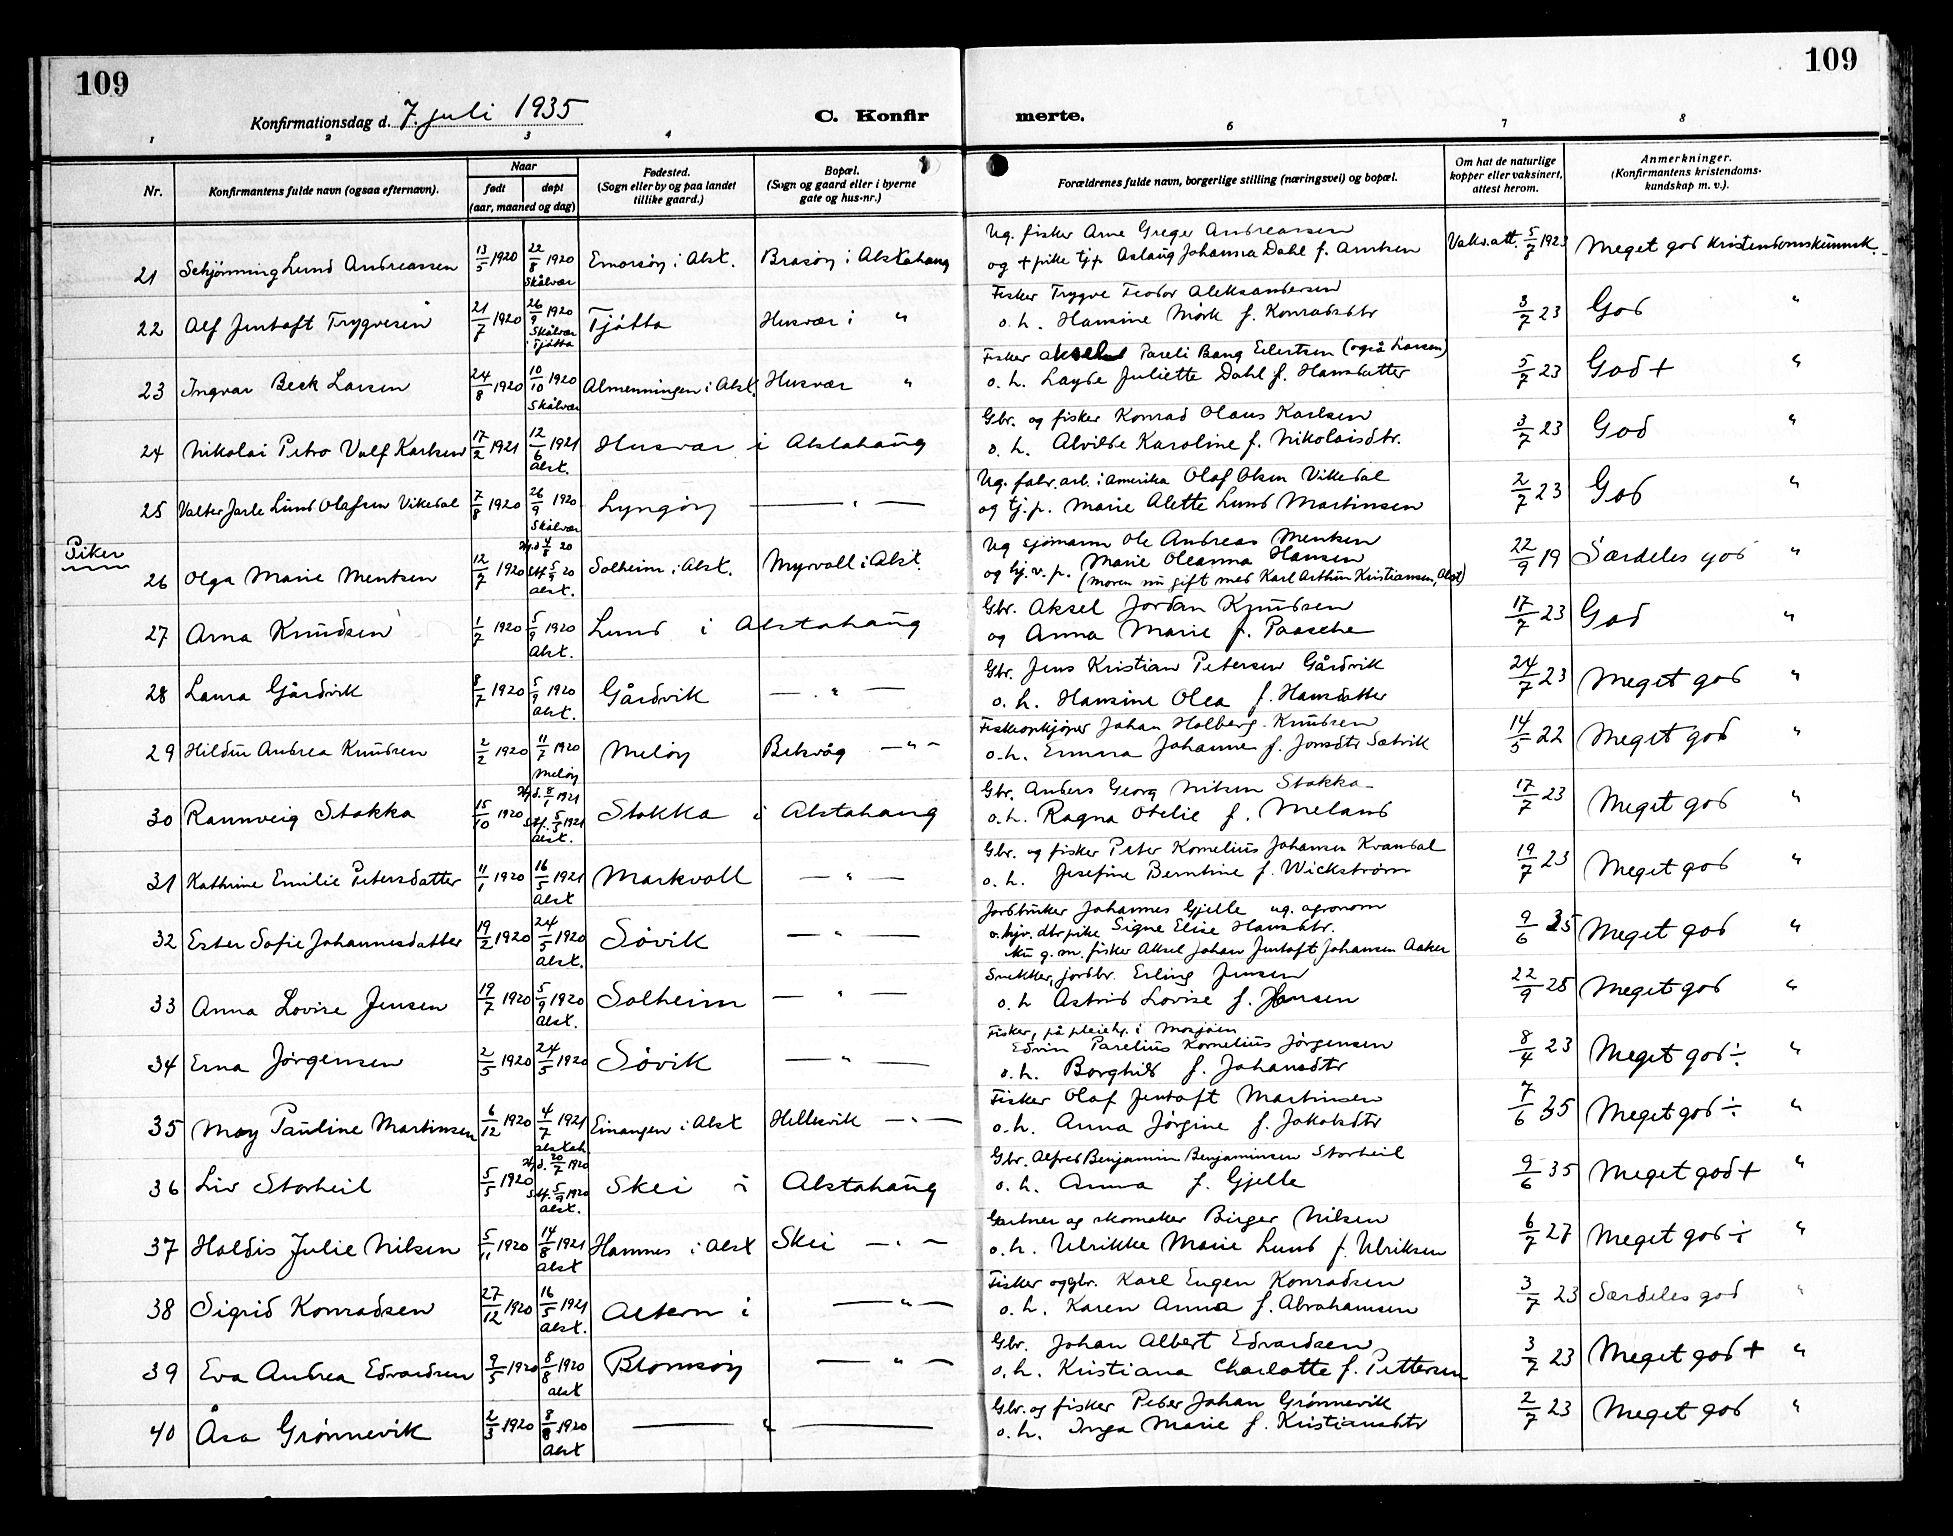 109
109
Konfirmationsdag d. 7. juli 1935
C. Konfir merte.
1 2 3 4 6 7 8
Nr.
Konfirmantens fulde navn (ogsaa efternavn).
Naar
født døpt
(aar, maaned og dag)
Fødested.
(Sogn eller by og paa landet
tillike gaard.)
Bopæl.
(Sogn og gaard eller i byerne
gate og hus-nr.)
Forældrenes fulde navn, borgerlige stilling (næringsvei) og bopæl.
Om hat de naturlige
kopper eller vaksinert,
attest herom.
Anmerkninger.
(Konfirmantens kristendoms-
kundskap m. v.).
21 Schjønning Lund Andreassen 13/5 1920 22/8 1920 Skålvær i Alst. Brasøy i Alstahaug
Ug. fisker Arne Greger Andreassen
og + pike tjp. Aslaug Johanna Dahl f. Arntsen Vaks.att. 5/7 1923 Meget god kristendomskunnsk.
22 Alf Jentoft Trygvesen 21/7 1920 26/9 1920 Skålvær i Tjøtta Tjøtta Husvær i "
Fisker Trygve Teodor Aleksandersen
o. h. Hansine Mørk f. Konradsdtr 3/7 23 God "
23 Ingvar Beck Larsen 24/8 1920 10/10 1920 Skålvær Almenningen i Alst. Husvær "
Fisker Aksel Pareli Bang Eilertsen (også Larsen)
o. h. Layde Juliette Dahl f. Hansdatter 5/7 23 God + "
24 Nikolai Petro Valf Karlsen 17/2 1921 12/6 1921 Alst. Husvær i Alstahaug
Gbr. og fisker Konrad Olaus Karlsen
o. h. Alvilde Karoline f. Nikolaisdtr. 3/7 23 God "
25 Valter Jarle Lund Olafsen Vikedal 7/8 1920 26/9 1920 Skålvær Lyngøy — " —
Ug. fabr. arb. i Amerika Olaf Olsen Vikedal
og tj. p. Marie Alette Lund Martinsen 2/7 23 God "
Piker
26 Olga Marie Mentsen 12/7 1920 Hj.d 4/8 20 Stf 5/9 20 Alst. Solheim i Alst. Myrvoll i Alst.
Ug sjømann Ole Andreas Mentsen
og hj. v. p. Marie Oleanna Hansen
(moren nu gift med Karl Arthur Kristiansen, Alst) 22/9 19 Særdeles god "
27 Arna Knudsen 1/7 1920 5/9 1920 Alst. Lund i Alstahaug
Gbr. Aksel Jordan Knudsen
og Anna Marie f. Paasche 17/7 23 God "
28 Laura Gårdvik 8/7 1920 5/9 1920 Alst. Gårdvik — " —
Gbr. Jens Kristian Petersen Gårdvik
o. h. Hansine Olea f. Hansdatter 24/7 23 Meget god "
29 Hildur Andrea Knudsen 2/2 1920 11/7 1920 Meløy Meløy Belsvåg — " —
Fiskeopkjøper Johan Holberg Knudsen
o. h. Emma Johanne f. Jonsdtr Sætvik 14/5 22 Meget god "
30 Rannveig Stokka 15/10 1920 Hj.d. 8/1 1921 Stf. 5/5 1921 Alst. Stokka i Alstahaug
Gbr. Anders Georg Nilsen Stokka
o. h. Ragna Otelie f. Meland 17/7 23 Meget god "
31 Kathrine Emilie Petersdatter 11/1 1920 16/5 1921 Alst Markvoll — " —
Gbr. og fisker Peter Kornelius Johansen Kvandal
o. h. Josefine Berntine f. Wickstrøm 19/7 23 Meget god "
32 Ester Sofie Johannesdatter 19/2 1920 24/5 1920 Alst. Søvik — " —
Jordbruker Johannes Gjelle ug. agronom
o. hjv. dtr pike Signe Elise Hansdtr.
Nu g. m. fisker Aksel Johan Jentoft Johansen Aaker 9/6 35 Meget god "
33 Anna Lovise Jensen 19/7 1920 5/9 1920 Alst. Solheim — " —
Snekker, jordbr. Erling Jensen
o. h Astrid Lovise f. Jensen 22/9 25 Meget god "
34 Erna Jørgensen 2/5 1920 24/5 1920 Søvik — " —
Fisker, på pleiehj. i Mosjøen
Edvin Parelius Kornelius Jørgensen
o. h. Borghild f. Johansdtr 8/4 23 Meget god ÷ "
35 May Pauline Martinsen 6/12 1920 4/7 1921 Alstah. Einangen i Alst Hellesvik — " —
Fisker Olaf Jentoft Martinsen
o. h. Anna Jørgine f. Jakobsdtr 7/6 35 Meget god ÷ "
36 Liv Storheil 5/5 1920 Hj.d. 20/7 1920 Stf. 5/9 1920 Alst. Skei i Alstahaug
Gbr. Alfred Benjamin Benjaminsen Storheil
o. h. Anna f. Gjelle 9/6 35 Meget god + "
37 Haldis Julie Nilsen 5/11 1920 14/8 1921 Alst Hamnes i Alst Skei — " —
Gartner og skomaker Birger Nilsen
o. h. Ulrikke Marie Lund f. Ulriksen 6/7 27 Meget god ÷ "
38 Sigrid Konradsen 27/12 1920 16/5 1921 Alst. Altern i — " —
Fisker og gbr. Karl Eugen Konradsen
o. h. Karen Anna f. Abrahamsen 3/7 23 Særdeles god "
39 Eva Andrea Edvardsen 9/5 1920 8/8 1920 Alst Blomsøy — " —
Gbr. Johan Albert Edvardsen
o. h. Kristiana Charlotte f. Pettersen 3/7 23 Meget god + "
40 Åsa Grønnevik 2/3 1920 8/8 1920 Alst — " —
Gbr. og fisker Peder Johan Grønnevik
o. h. Inga Marie f. Kristiansdtr 2/7 23 Meget god "